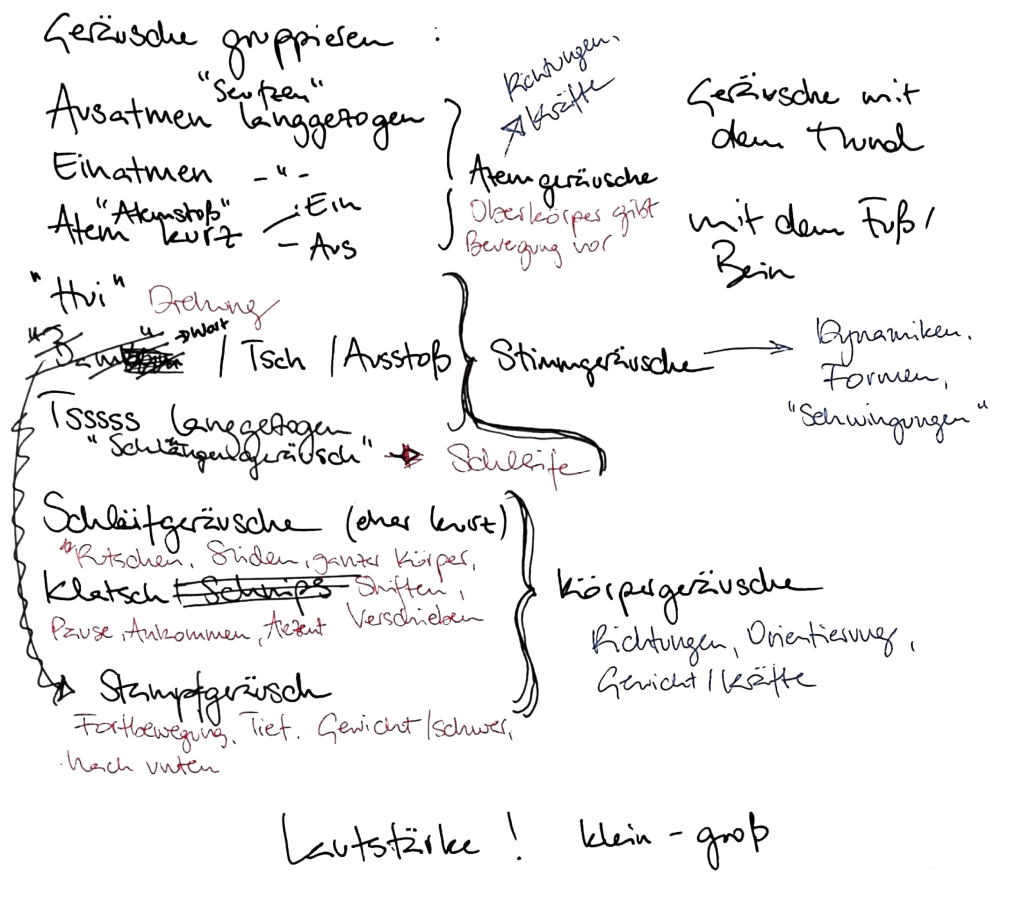 Geräusche gruppieren :
"Seufzen"
Ausatmen langgezogen
Einatmen - " -
"Atemstoß"
Atem kurz - Ein
- Aus
Richtungen,
Kräfte
Atemgeräusche
Oberkörper gibt
Bewegung vor
Geräusche mit
dem Mund
mit dem Fuß /
Bein
"Hui" Drehung
→ Wort
/ Tsch / Ausstoß
Tsssss langgezogen
"Schlangengeräusch" → Schleife
Stimmgeräusche →
Dynamiken,
Formen,
"Schwingungen"
Schleifgeräusche (eher kurz)
Rutschen, Sliden, ganzer Körper,
Klatsch Schnips Shiften,
Pause, Ankommen, Akzent Verschieben
→ Stampfgeräusch
Fortbewegung, Tief. Gewicht/schwer,
nach unten
Körpergeräusche
Richtungen, Orientierung,
Gewicht/Kräfte
Lautstärke ! klein - groß